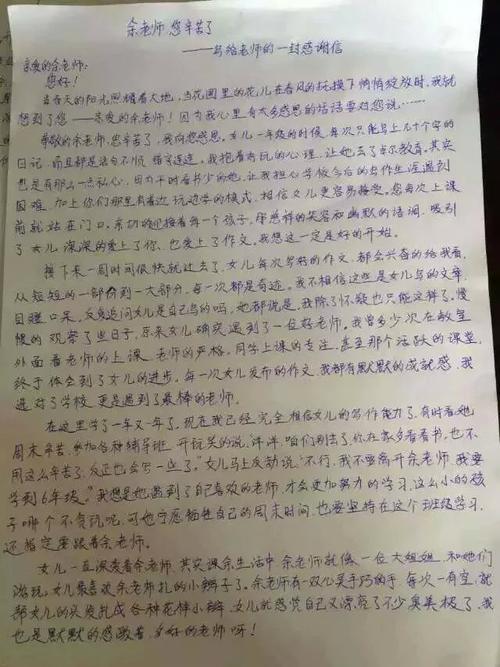 余老师 您辛苦了
——写给老师的一封感谢信
亲爱的余老师:
您好!
当春天的阳光照耀着大地,当花园里的花儿在春风的抚摸下悄悄绽放时,我就
想到了您——亲爱的余老师!因为我心里有太多感恩的话语要对您说……
尊敬的余老师,您辛苦了,我向您感恩。女儿一年级的时候,每次只能写上几十个字的
日记,而且都是语句不顺,错字连连,我抱着有玩的心理,让她去了卓尔教育,其实
也是有那么一点私心,因为平时看书少的她,让我担心学校今后的写作生涯遇到
困难,加上你们那里有着边玩边学的模式,相信女儿更容易接受。您每次上课
前就站在门口,亲切的迎接着每一个孩子,那慈祥的笑容和幽默的语调,吸引
了女儿,深深的爱上了你,也爱上了作文。我想这一定是好的开始。
接下来一周时间很快就过去了,女儿每次写好的作文,都会兴奋的给我看,
从短短的一部份到一大部分,每一次都是奇迹。我不相信这些是女儿写的文章,
目瞪口呆,反复追问女儿是自己写的吗,她都说是,我除了怀疑也只能这样了,慢
慢的观察了些日子,原来女儿确实遇到了一位好老师。我曾多少次在教室
外面看老师的上课,老师的严格,同学上课的专注,甚至那个活跃的课堂,
终于体会到了女儿的进步。每一次女儿发布的作文,我都有默默的成就感,我
选对了学校,更是遇到了最棒的老师。
在这里学了一年又一年了,现在我已经完全相信女儿的写作能力了,有时看她
周末辛苦,参加各种辅导班,开玩笑的说,洋洋,咱们别去了,你在家多看看书,也不
用这么辛苦了,反正也会写一些了,"女儿马上反驳说,"不行,我不要离开余老师,我要
学到6年级。"我想是她遇到了自己喜欢的老师,才会更加努力的学习,这么小的孩
子哪个不贪玩呢,可她宁愿牺牲自己的周末时间,也要坚持在这个班级学习,
还指定要跟着余老师。
女儿一直深爱着余老师,其实课余生活中,余老师就像一位大姐姐,和她们
游玩,女儿最喜欢余老师扎的小辫子了。余老师有一双心灵手巧的手,每次一有空,就
帮女儿的头发扎成各种花样小辫,女儿就感觉自己又漂亮了不少,臭美极了,我
也是默默的感激着,多好的老师呀!